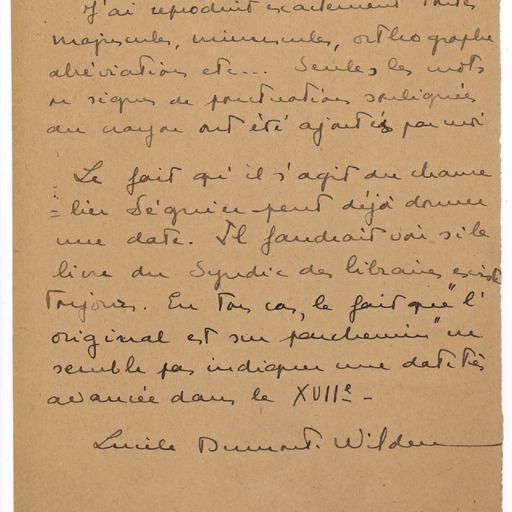 J'ai reproduit exactement toutes
majuscules, minuscules, orthographe
abréviations etc... Seules les mots
ou signes de ponctuations soulignés
au crayon ont été ajoutés par moi
Le fait qu'il s'agit du chance
= lier Séguier peut déjà donner
une date. Il faudrait voir si le
livre du Syndic des libraires existe
toujours. En tous cas, le fait que "l'
original est sur parchemin" ne
semble pas indiquer une date très
avancée dans le XVIIe -
Lucile Dumont-Wilden